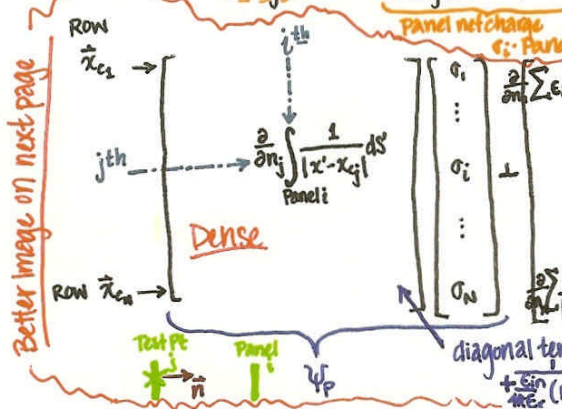 Better Image on next page
Panel net charge
σi · Pane
ROW
x⃗c1
ith
jth
∂/∂nj ∫Panel i 1/|x'-xcj| dS'
Dense
ROW x⃗cN
σ1
⋮
σi
⋮
σN
∂/∂n1 Σ
∂/∂n Σ
Test Pt
n⃗
Panel
Ψp
diagonal ter